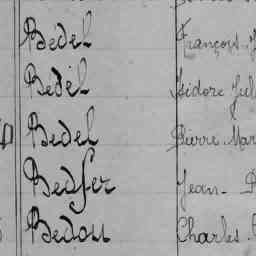 Bedel François
Bedel Isidore Jul
Bedel Pierre Mar
Bedfer Jean
Bedou Charles